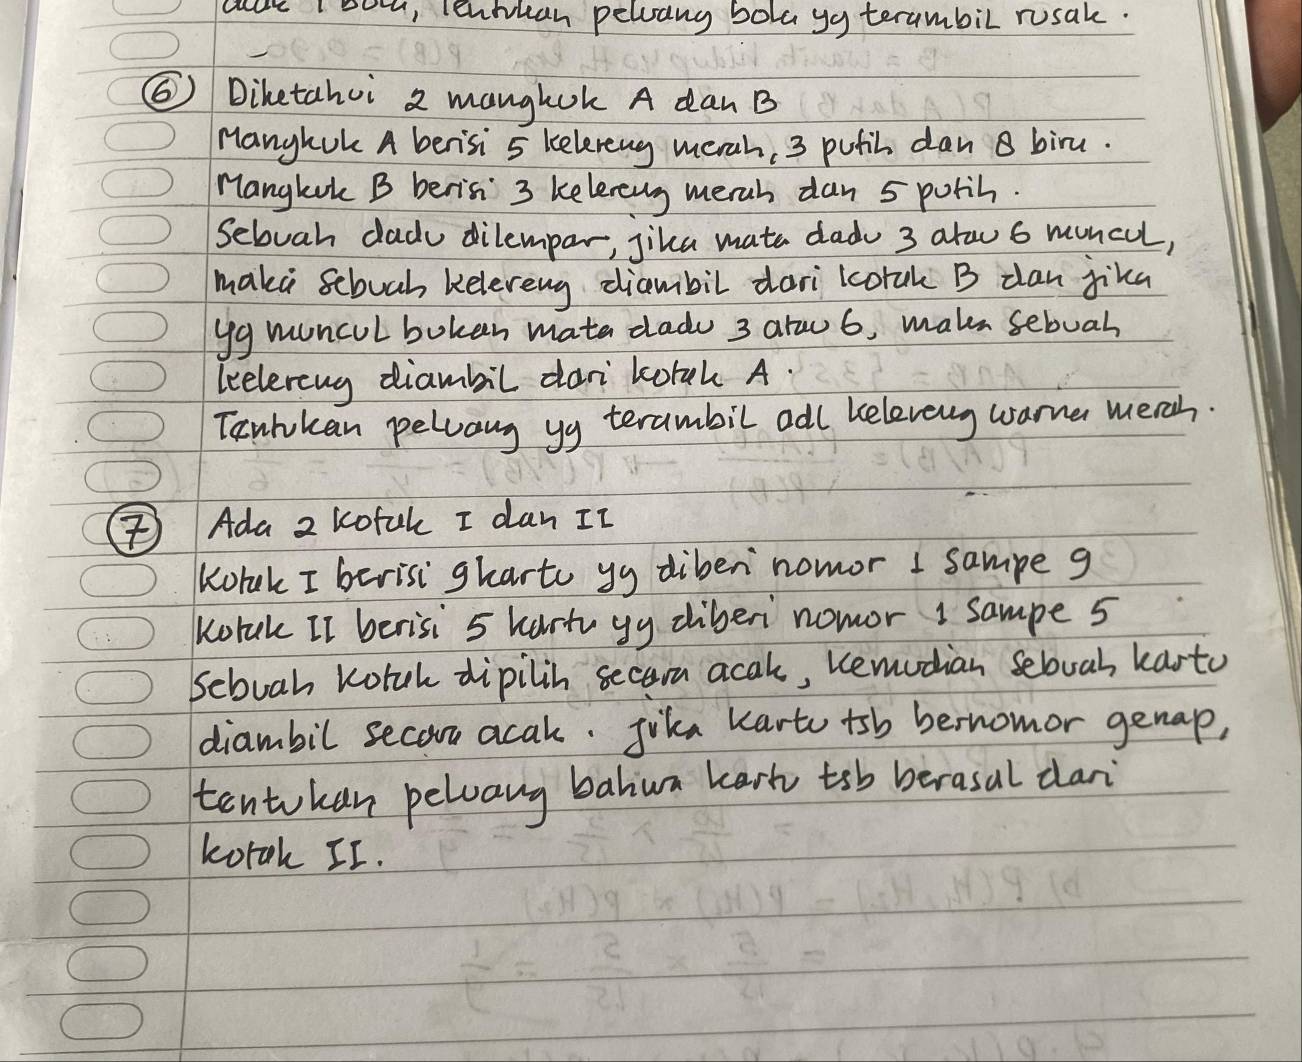 acak 1 bola, tentukan peluang bola yg terambil rusak.
⑥ Diketahui 2 mangkok A dan B
Mangkuk A berisi 5 kelereng merah, 3 putih dan 8 biru.
Mangkuk B berisi 3 kelereng merah dan 5 putih.
Sebuah dadu dilempar, jika mata dadu 3 atau 6 muncul,
maka sebuah kelereng diambil dari kotak B dan jika
yg muncul bukan mata dadu 3 atau 6, maka sebuah
kelereng diambil dari kotak A.
Tentukan peluang yg terambil adl kelereng warna merah.
⑦ Ada 2 kotak I dan II
Kotak I berisi 9 kartu yg diberi nomor 1 sampe 9
Kotak II berisi 5 kartu yg diberi nomor 1 sampe 5
Sebuah kotak dipilih secara acak, kemudian sebuah kartu
diambil secara acak. Jika kartu tsb bernomor genap,
tentukan peluang bahwa kartu tsb berasal dari
kotak II.